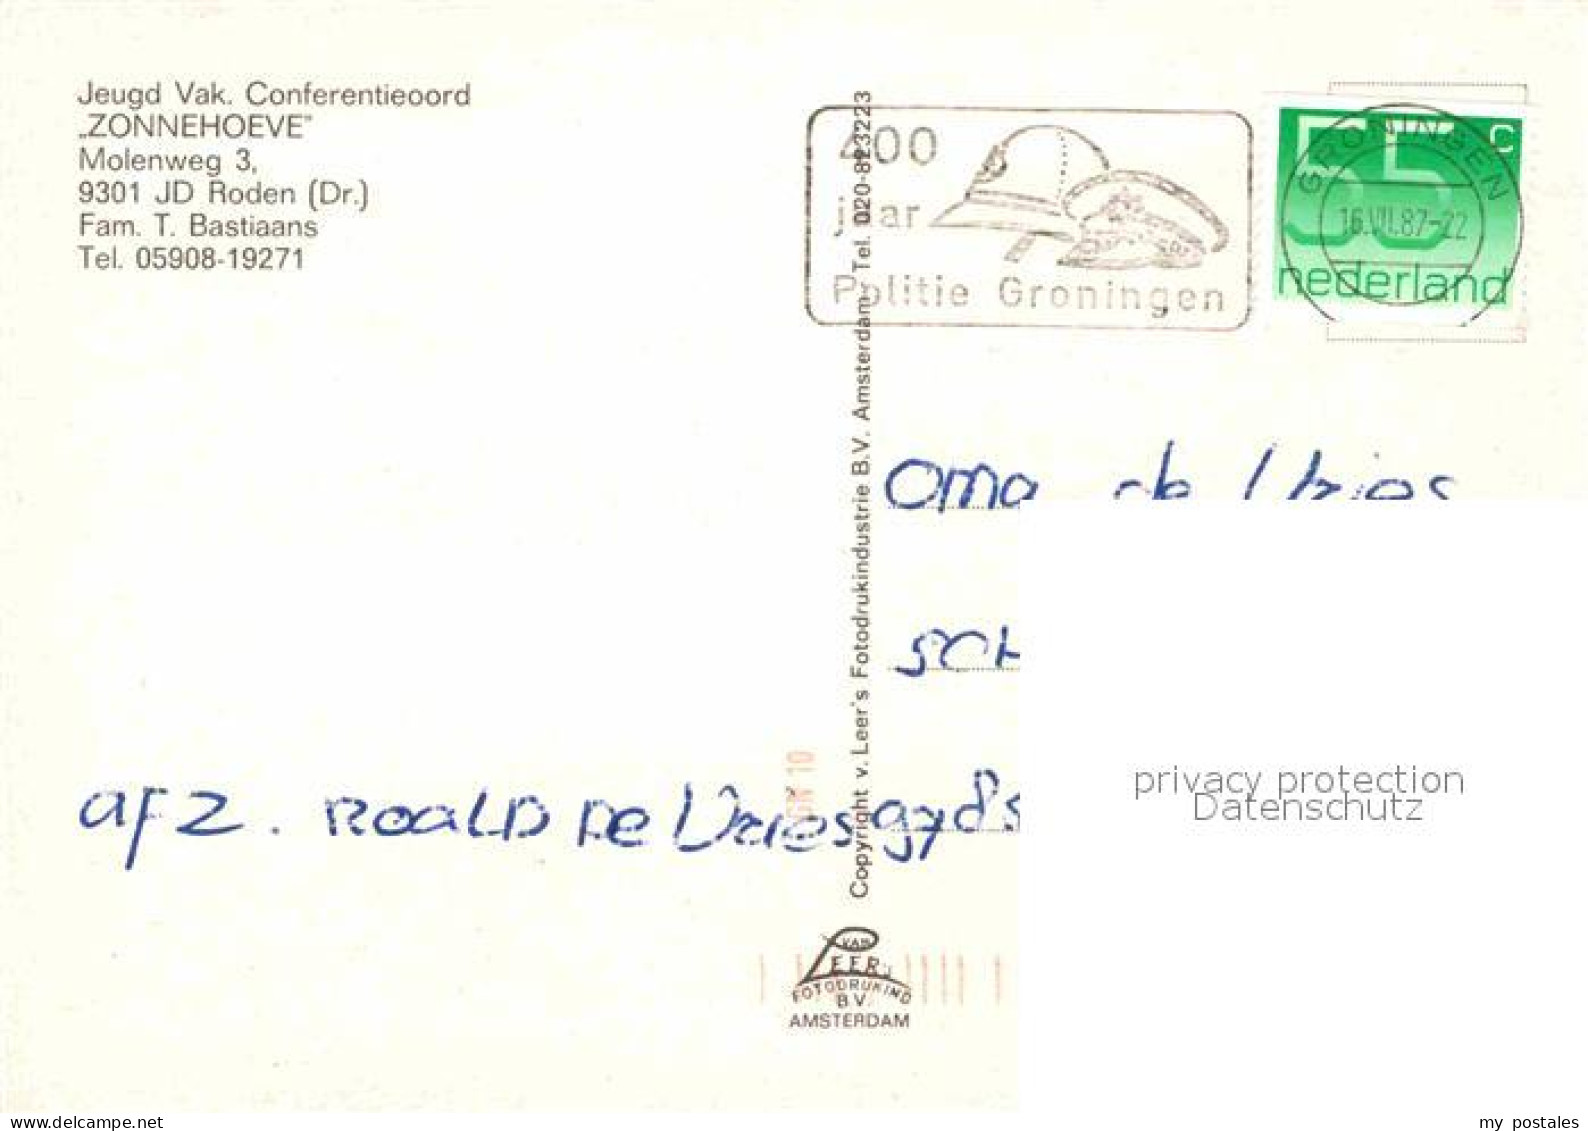 Jeugd Vak. Conferentieoord
„ZONNEHOEVE"
Molenweg 3,
9301 JD Roden (Dr.)
Fam. T. Bastiaans
Tel. 05908-19271
400
jaar
Politie Groningen
GRONINGEN
16.VII.87-22
55 c
nederland
Copyright v. Leer's Fotodrukindustrie B.V. Amsterdam - Tel. 020-823223
Oma de Vries
SCH
afz. Roald de Vries
GN 10
VAN
LEER'S
FOTODRUKIND
B.V.
AMSTERDAM
privacy protection
Datenschutz
www.delcampe.net
my_postales